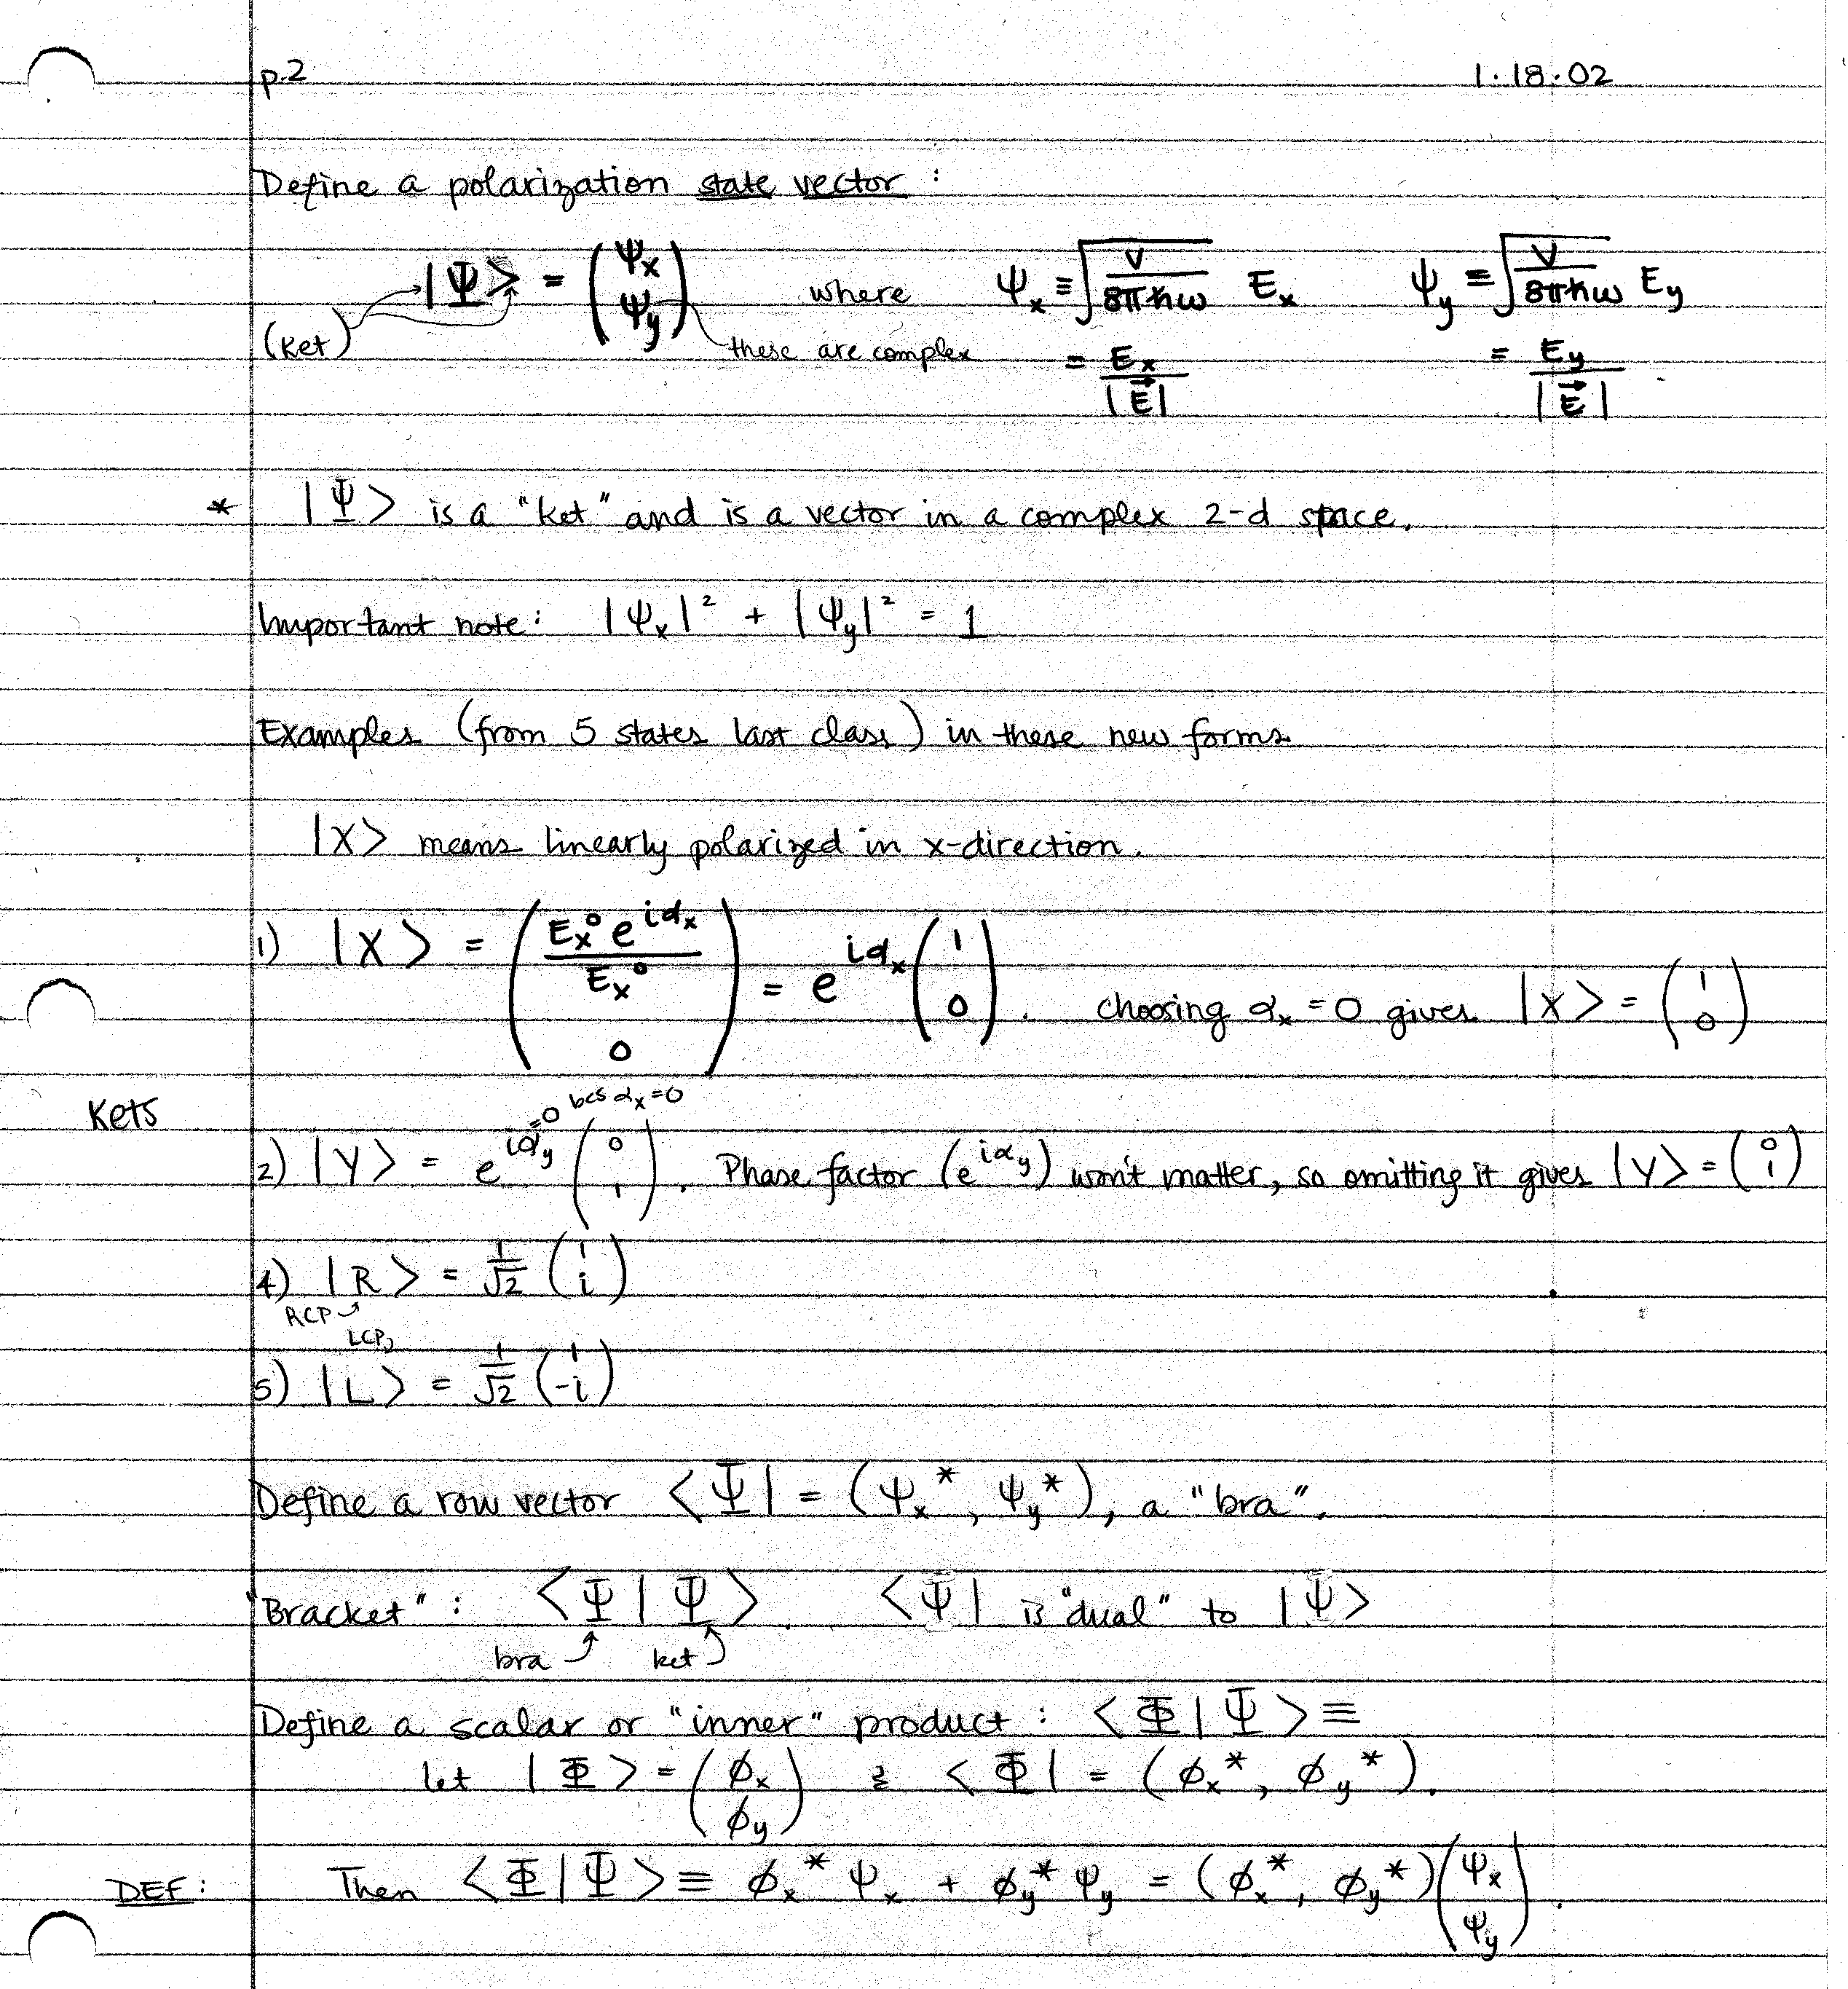 p.2 1.18.02
Define a polarization state vector :
|Ψ> = (Ψx Ψy) where Ψx ≡ √(V/8πħω) Ex Ψy ≡ √(V/8πħω) Ey
(ket) these are complex = Ex/|E⃗| = Ey/|E⃗|
* |Ψ> is a "ket" and is a vector in a complex 2-d space.
Important note: |Ψx|² + |Ψy|² = 1
Examples (from 5 states last class) in these new forms
|X> means linearly polarized in x-direction.
1) |X> = (Ex° e^{iαx}/Ex° 0) = e^{iαx} (1 0). Choosing αx = 0 gives |X> = (1 0)
=0 bcs αx=0
Kets
2) |Y> = e^{iαy} (0 1). Phase factor (e^{iαy}) won't matter, so omitting it gives |Y> = (0 1)
4) |R> = 1/√2 (1 i)
RCP
LCP
5) |L> = 1/√2 (1 -i)
Define a row vector <Ψ| = (Ψx*, Ψy*), a "bra".
"Bracket" : <Ψ|Ψ>. <Ψ| is "dual" to |Ψ>
bra ket
Define a scalar or "inner" product : <Φ|Ψ> ≡
let |Φ> = (ϕx ϕy) & <Φ| = (ϕx*, ϕy*).
DEF: Then <Φ|Ψ> ≡ ϕx* Ψx + ϕy* Ψy = (ϕx*, ϕy*)(Ψx Ψy).